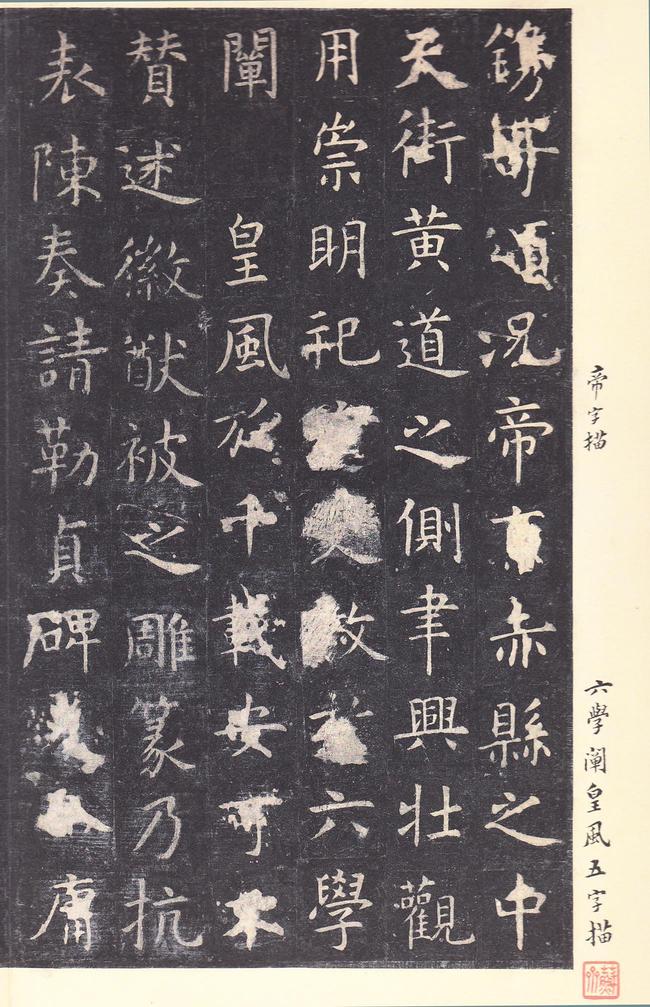 鐫頌况帝京赤縣之中
天街黃道之側聿興壯觀
用崇明祀教於六學
闡皇風於千載安可不
贊述徽猷被之雕篆乃抗
表陳奏請勒貞碑庸
帝字描
六學闡皇風五字描